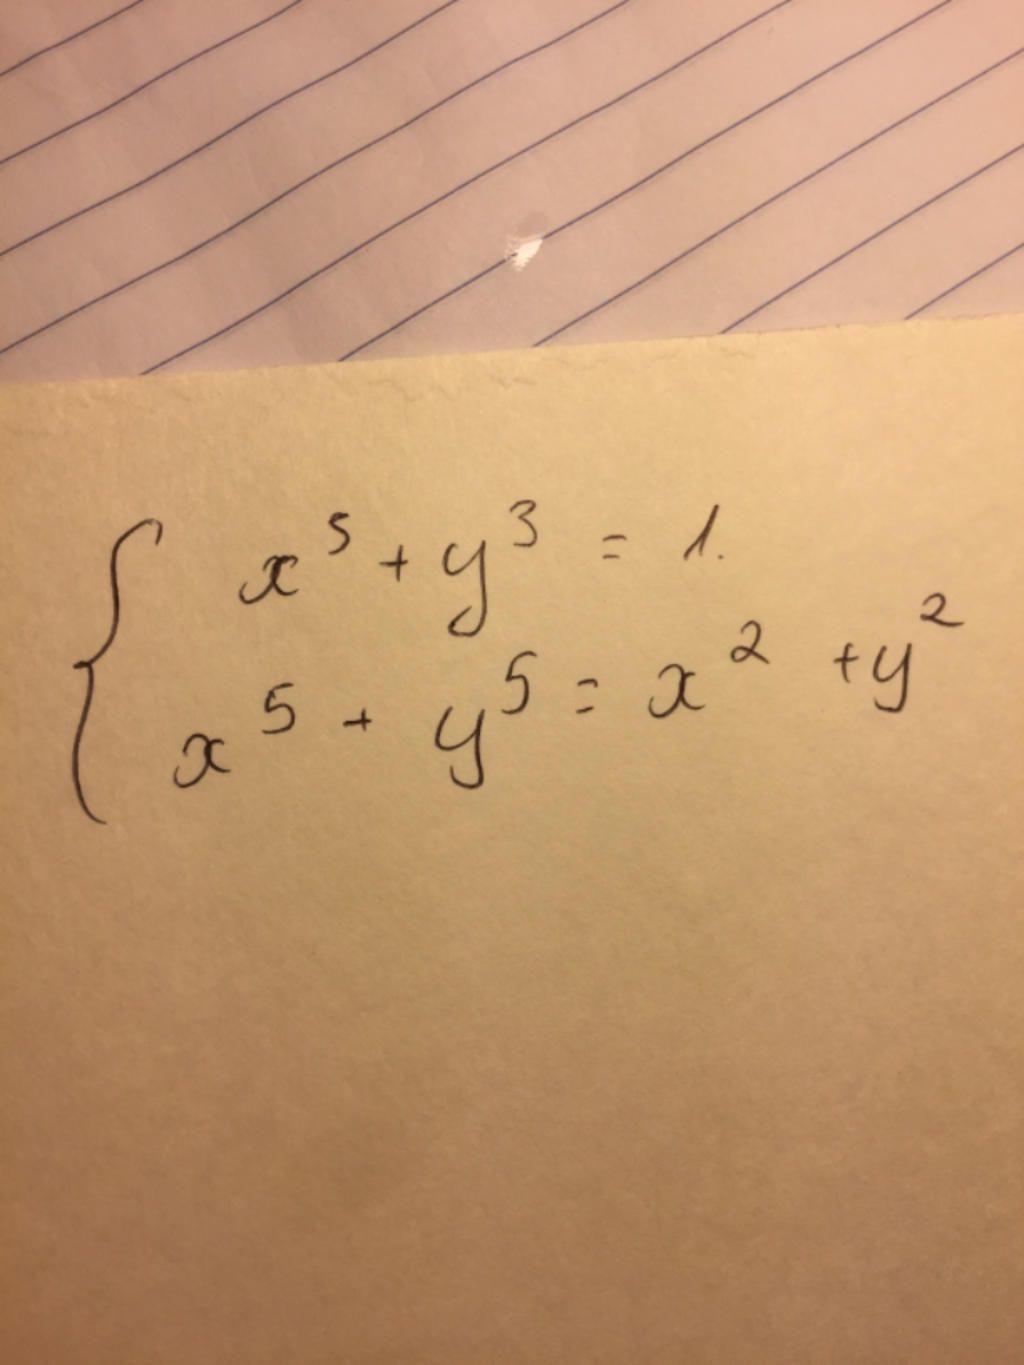 x⁵ + y³ = 1.
x⁵ + y⁵ = x² + y²